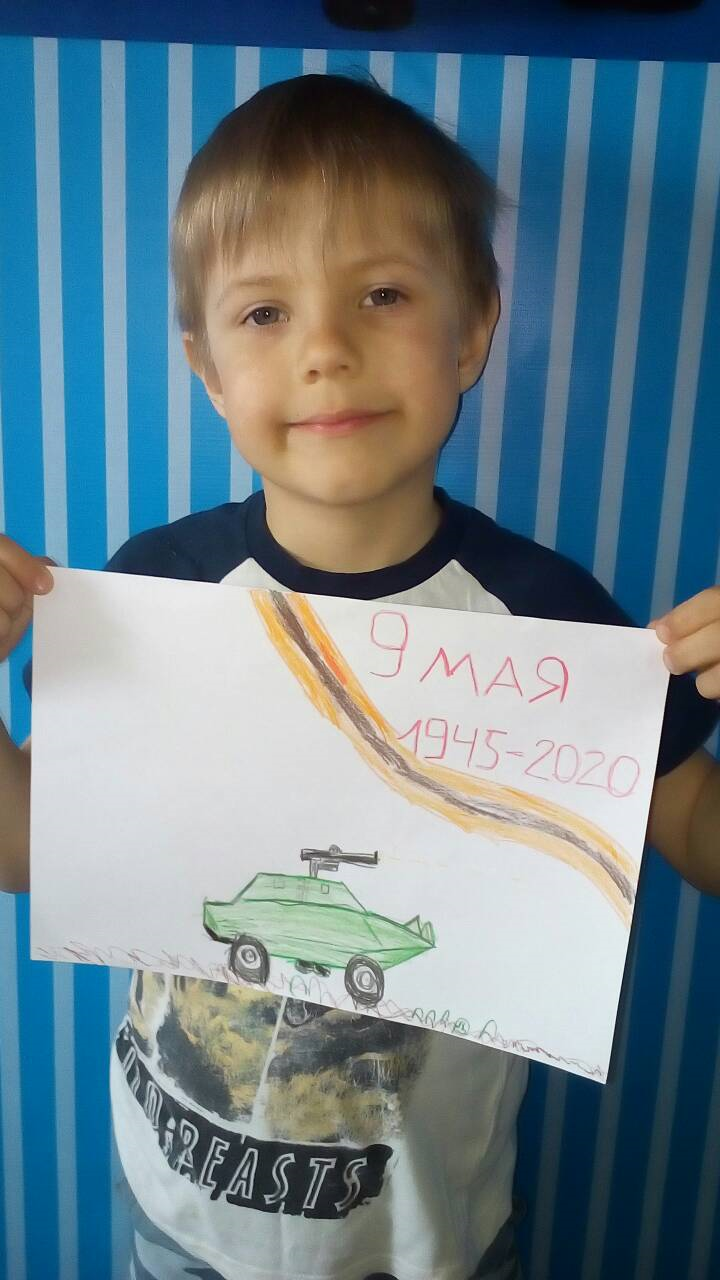 9 МАЯ
1945-2020
BEASTS